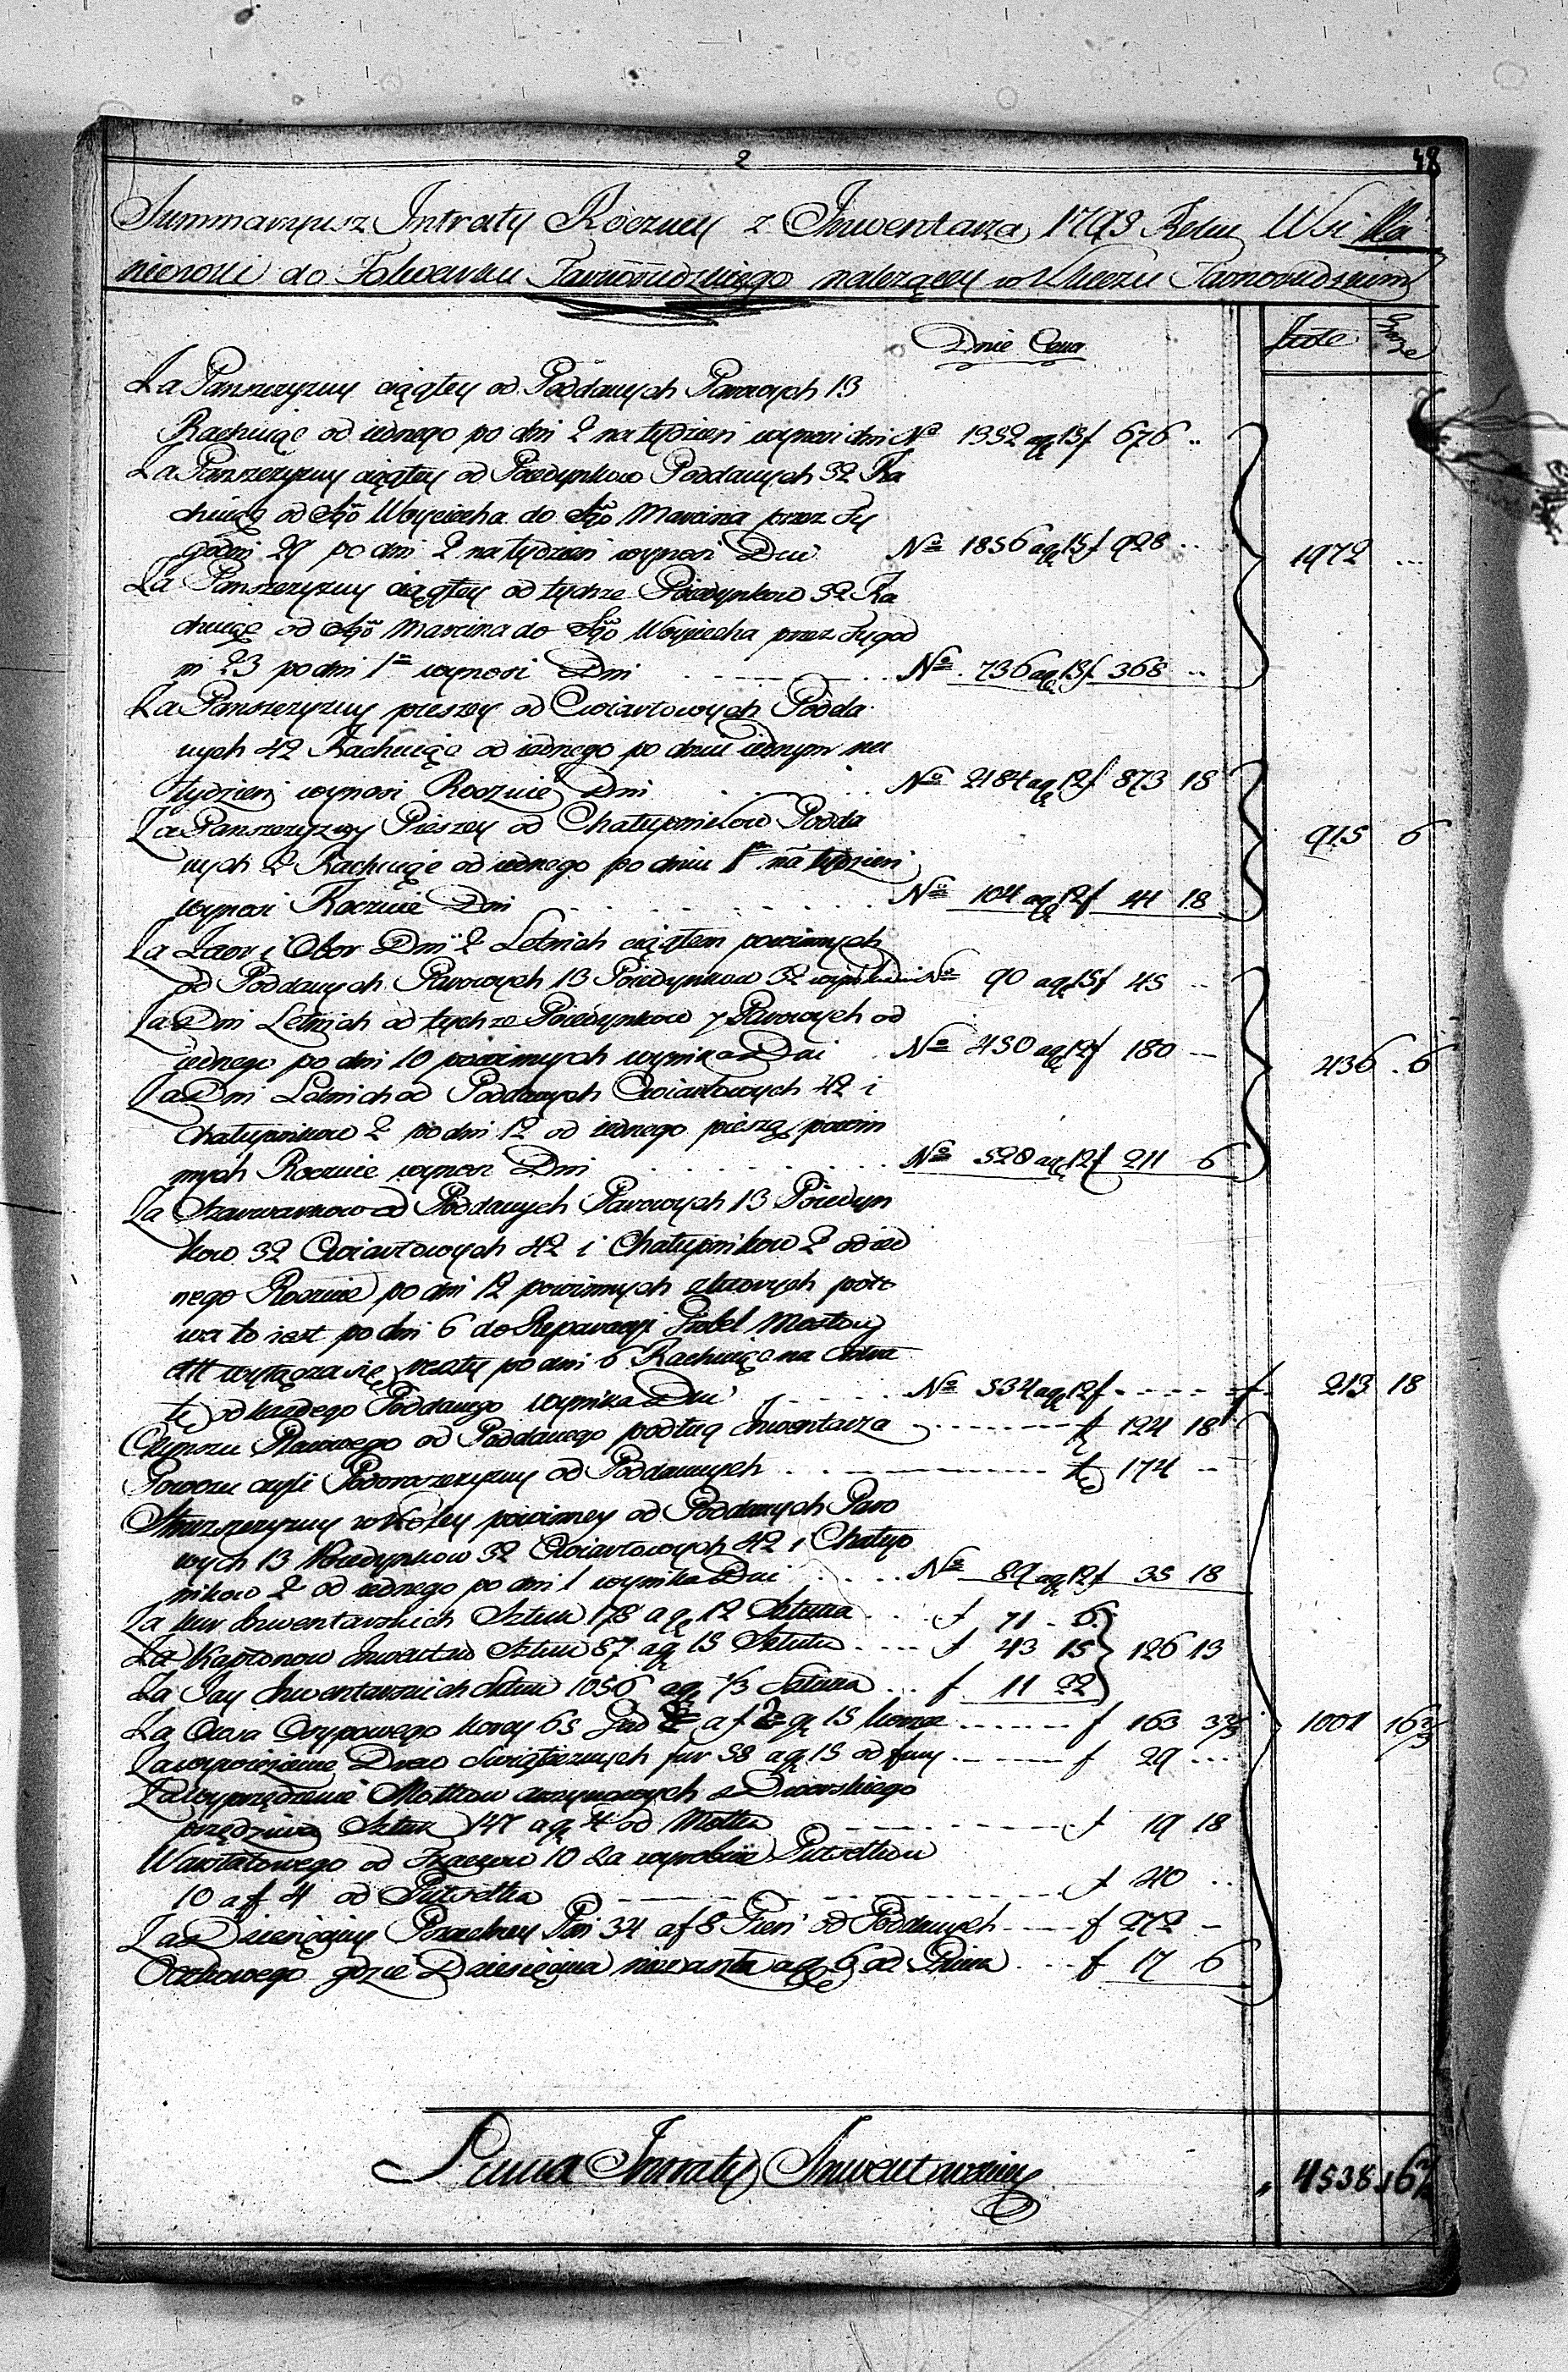 2
48
Summaryusz Intraty Roczney z Inwentarza 1793 Roku Wsi Ma
niewki do Folwarku Tarnorudzkiego należącey w Kluczu Tarnorudzkim
Dnie Cena
Złote Grosze
Za Panszczyzny ciągłey od Poddanych Parowych 13
Rachuiąc od iednego po dni 2 na tydzień wynosi dni No 1352 a gr 15 f 676 ..
Za Panszczyzny ciągłey od Poiedynkow Poddanych 32 Ra
chuiąc od Sgo Woyciecha do Sgo Marcina przez Ty
godni 29 po dni 2 na tydzień wynosi Dni No 1856 a gr 15 f 928 ..
1972 ...
Za Panszczyzny ciągłey od tychże Poiedynkow 32 Ra
chuiąc od Sgo Marcina do Sgo Woyciecha przez Tygod
ni 23 po dni 1m wynosi Dni No 736 a gr 15 f 368 ..
Za Panszczyzny pieszey od Cwiartowych Podda
nych 42 Rachuiąc od iednego po dniu iednym na
tydzień wynosi Rocznie Dni No 2184 a gr 12 f 873 18
Za Panszczyzny Pieszey od Chałupnikow Podda
915 6
nych 2 Rachuiąc od iednego po dniu 1m na tydzień
wynosi Rocznie Dni No 104 a gr 12 f 41 18
Za Zaor i Obor Dni 2 Letnich ciągłem powinnych
od Poddanych Parowych 13 Poiedynkow 32 wynika dni No 90 a gr 15 f 45 ..
Za Dni Letnich od tychże Poiedynkow y Parowych od
iednego po dni 10 powinnych wynika Dni No 450 a gr 12 f 180 --
436 . 6
Za Dni Letnich od Poddanych Cwiartowych 42 i
Chałupnikow 2 po dni 12 od iednego pieszą powin
nych Rocznie wynosi Dni No 528 a gr 12 f 211 6
Za Szarwarkow od Poddanych Parowych 13 Poiedyn
kow 32 Cwiartowych 42 i Chałupnikow 2 od ied
nego Rocznie po dni 12 powinnych z ktorych poło
wa to iest po dni 6 do Reparacyi Grobel Mostow
ett wyłącza się, reszty po dni 6 Rachuiąc na Intra
tę od każdego Poddanego wynika Dni No 534 a gr 12 f - - - - f 213 18
Czynszu Placowego od Poddanego podług Inwentarza f 124 18
Powozu czyli Podorozczyzny od Poddanych f 174 --
Strozszczyzny w Koley powinney od Poddanych Paro
wych 13 Poiedynkow 32 Cwiartowych 42 i Chałup
nikow 2 od iednego po dni 1 wynika Dni No 89 a gr 12 f 35 18
Za kur Inwentarskich Sztuk 178 a gr 12 Sztuka f 71 - 6
Za Kapłonow Inwentar Sztuk 87 a gr 15 Sztuka f 43 15 } 126 13
Za Jay Inwentarskich Sztuk 1056 a gr 1/3 Sztuka f 11 22
Za Owsa Osypowego korcy 65 a f 2 gr 15 korzec f 163 3 2/3
1001 16 2/3
Za wywożenie Drew Swiątecznych fur 58 a gr 15 od fury f 29 ...
Za wyprzędzenie Motkow arzynowych z Dworskiego
przędziwa Sztuk 147 a gr 4 od Motka f 19 18
Warstatowego od Tkaczow 10 Za wyrobienie Pułsetkow
10 a f 4 od Pułsetka f 40 ..
Za Dziesięciny Pszczelney Pni 34 a f 8 Pień od Poddanych f 272 -
Oczkowego gdzie Dziesięcina niewzięta a gr 6 od Pnia f 17 6
Suma Intraty Inwentarskiey
4538 16 2/3